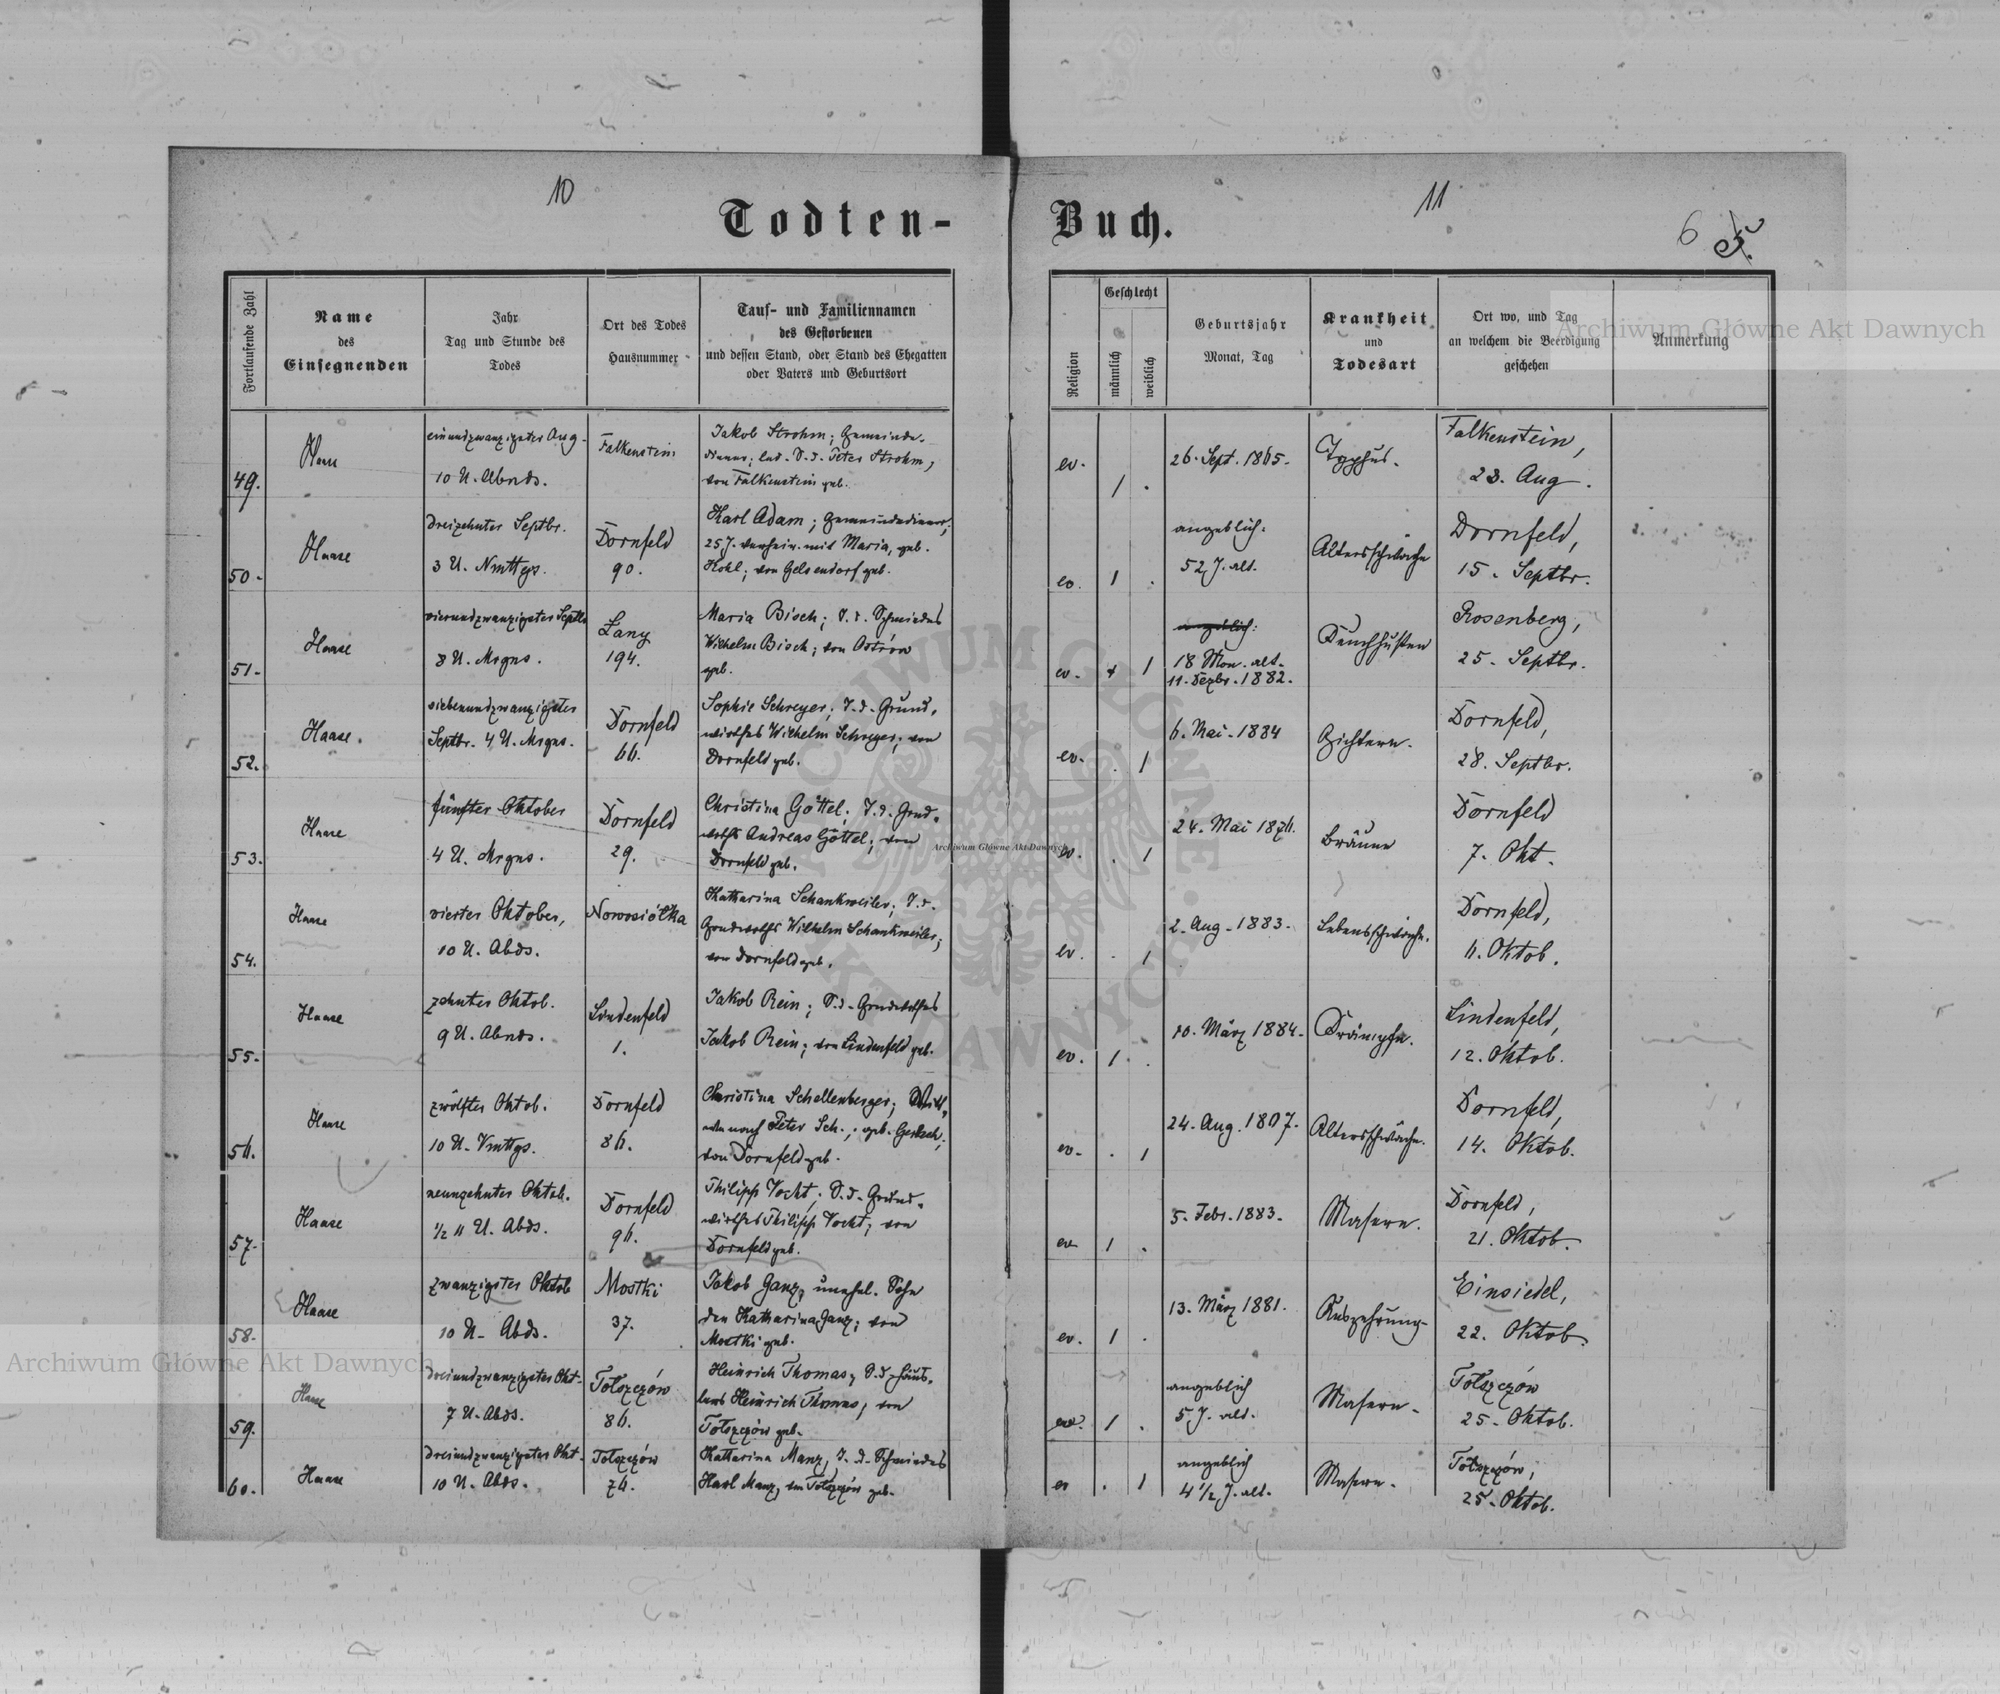 10
11
6
Todten-Buch.
Fortlaufende Zahl
Name
des
Einsegnenden
Jahr
Tag und Stunde des
Todes
Ort des Todes
Hausnummer
Tauf- und Familiennamen
des Gestorbenen
und dessen Stand, oder Stand des Ehegatten
oder Vaters und Geburtsort
Religion
Geschlecht
männlich
weiblich
Geburtsjahr
Monat, Tag
Krankheit
und
Todesart
Ort wo, und Tag
an welchem die Beerdigung
geschehen
Anmerkung
49.
einundzwanzigster Aug.
10 U. Abnds.
Falkenstein
Jakob Strohm; Gemeinde-
diener; led. S. d. Peter Strohm,
von Falkenstein geb.
ev.
1 .
26. Sept. 1865.
Typhus.
Falkenstein,
23. Aug.
50.
Haase
dreizehnter Septbr.
3 U. Nmttgs.
Dornfeld
90.
Karl Adam; Gemeindediener;
25 J. verheir. mit Maria, geb.
Kohl; von Gelsendorf geb.
ev.
1 .
angeblich:
52 J. alt.
Altersschwäche
Dornfeld,
15. Septbr.
51.
Haase
vierundzwanzigster Septbr
8 U. Mrgns.
Lany
194.
Maria Bisch; T. d. Schmiedes
Wilhelm Bisch; von Ostrów
geb.
ev.
1
angeblich:
18 Mon. alt.
11. Dezbr. 1882.
Keuchhusten
Rosenberg,
25. Septbr.
52.
Haase.
siebenundzwanzigster
Septbr. 4 U. Mrgns.
Dornfeld
66.
Sophie Schreyer; T. d. Grund-
wirthes Wilhelm Schreyer; von
Dornfeld geb.
ev.
. 1
6. Mai. 1884
Gichtern.
Dornfeld,
28. Septbr.
53.
Haase
fünfter Oktober
4 U. Mrgns.
Dornfeld
29.
Christina Göttel; T. d. Grnd-
wrths Andreas Göttel; von
Dornfeld geb.
ev.
. 1
24. Mai 1876.
Bräune
Dornfeld
7. Okt.
54.
Haase
vierter Oktober,
10 U. Abds.
Nowosiółka
Katharina Schankweiler; T. d.
Grndwrths Wilhelm Schankweiler;
von Dornfeld geb.
ev.
. 1
2. Aug. 1883.
Lebensschwäche.
Dornfeld,
6. Oktob.
55.
Haase
zehnter Oktob.
9 U. Abnds.
Lindenfeld
1.
Jakob Rein; S. d. Grndwrthes
Jakob Rein; von Lindenfeld geb.
ev.
1 .
10. März 1884.
Krämpfe.
Lindenfeld,
12. Oktob.
56.
Haase
zwölfter Oktob.
10 U. Vmttgs.
Dornfeld
86.
Christina Schellenberger; Witt-
we nach Peter Sch.; geb. Gerlach;
von Dornfeld geb.
ev.
. 1
24. Aug. 1807.
Altersschwäche.
Dornfeld,
14. Oktob.
57.
Haase
neunzehnter Oktob.
½ 11 U. Abds.
Dornfeld
96.
Philipp Vocht; S. d. Grund-
wirthes Philipp Vocht; von
Dornfeld geb.
ev
1 .
5. Febr. 1883.
Masern.
Dornfeld,
21. Oktob.
58.
Haase
zwanzigster Oktob
10 U. Abds.
Mostki
37.
Jakob Ganz, unehel. Sohn
der Katharina Ganz; von
Mostki geb.
ev.
1 .
13. März 1881.
Auszehrung.
Einsiedel,
22. Oktob.
59.
Haase
dreiundzwanzigster Okt.
7 U. Abds.
Tołszczów
86.
Heinrich Thomas, S. d. Häus-
lers Heinrich Thomas, von
Tołszczów geb.
ev.
1 .
angeblich
5 J. alt.
Masern.
Tołszczów
25. Oktob.
60.
Haase
dreiundzwanzigster Okt.
10 U. Abds.
Tołszczów
76.
Katharina Manz, T. d. Schmiedes
Karl Manz, von Tołszczów geb.
ev
. 1
angeblich
4 ½ J. alt.
Masern.
Tołszczów,
25. Oktob.
Archiwum Główne Akt Dawnych
Archiwum Główne Akt Dawnych
Archiwum Główne Akt Dawnych
ARCHIWUM GŁÓWNE AKT DAWNYCH